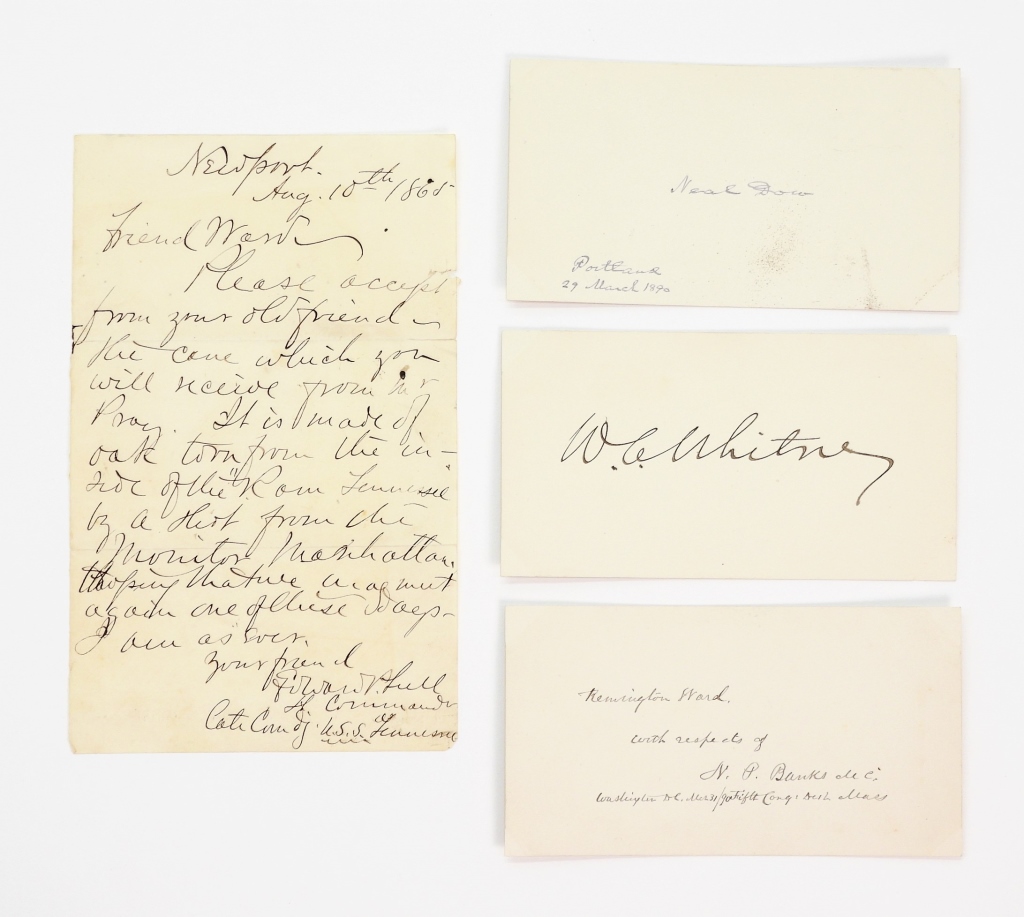 Newport.
Aug. 10th 1865
Friend Ward
Please accept
from your old friend
the cane which you
will receive from Mr
Pray. It is made of
oak torn from the in-
side of the "Ram Tennessee
by a shot from the
Monitor Manhattan.
Hoping that we may meet
again one of these days-
I am as ever.
your friend
Edward P. Lull
Lt Commander
Late Comdg. U.S.S. Tennessee
Neal Dow
Portland
29 March 1890
W. C. Whitney
Remington Ward.
with respects of
N. P. Banks M C.
Washington D.C. Mar 31/90 Fifth Cong. Dist. Mass